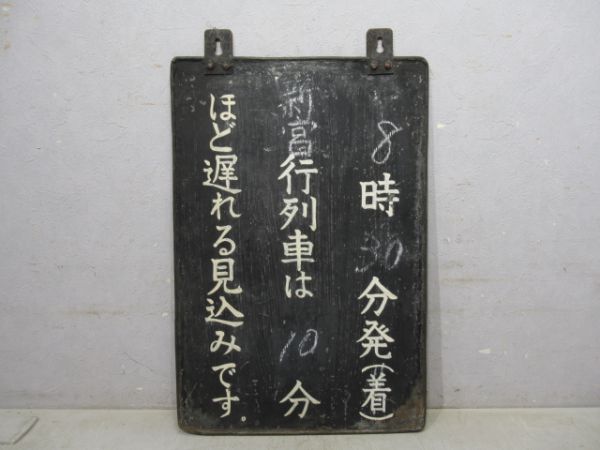 8時30分発(着)
新宮行列車は10分
ほど遅れる見込みです。